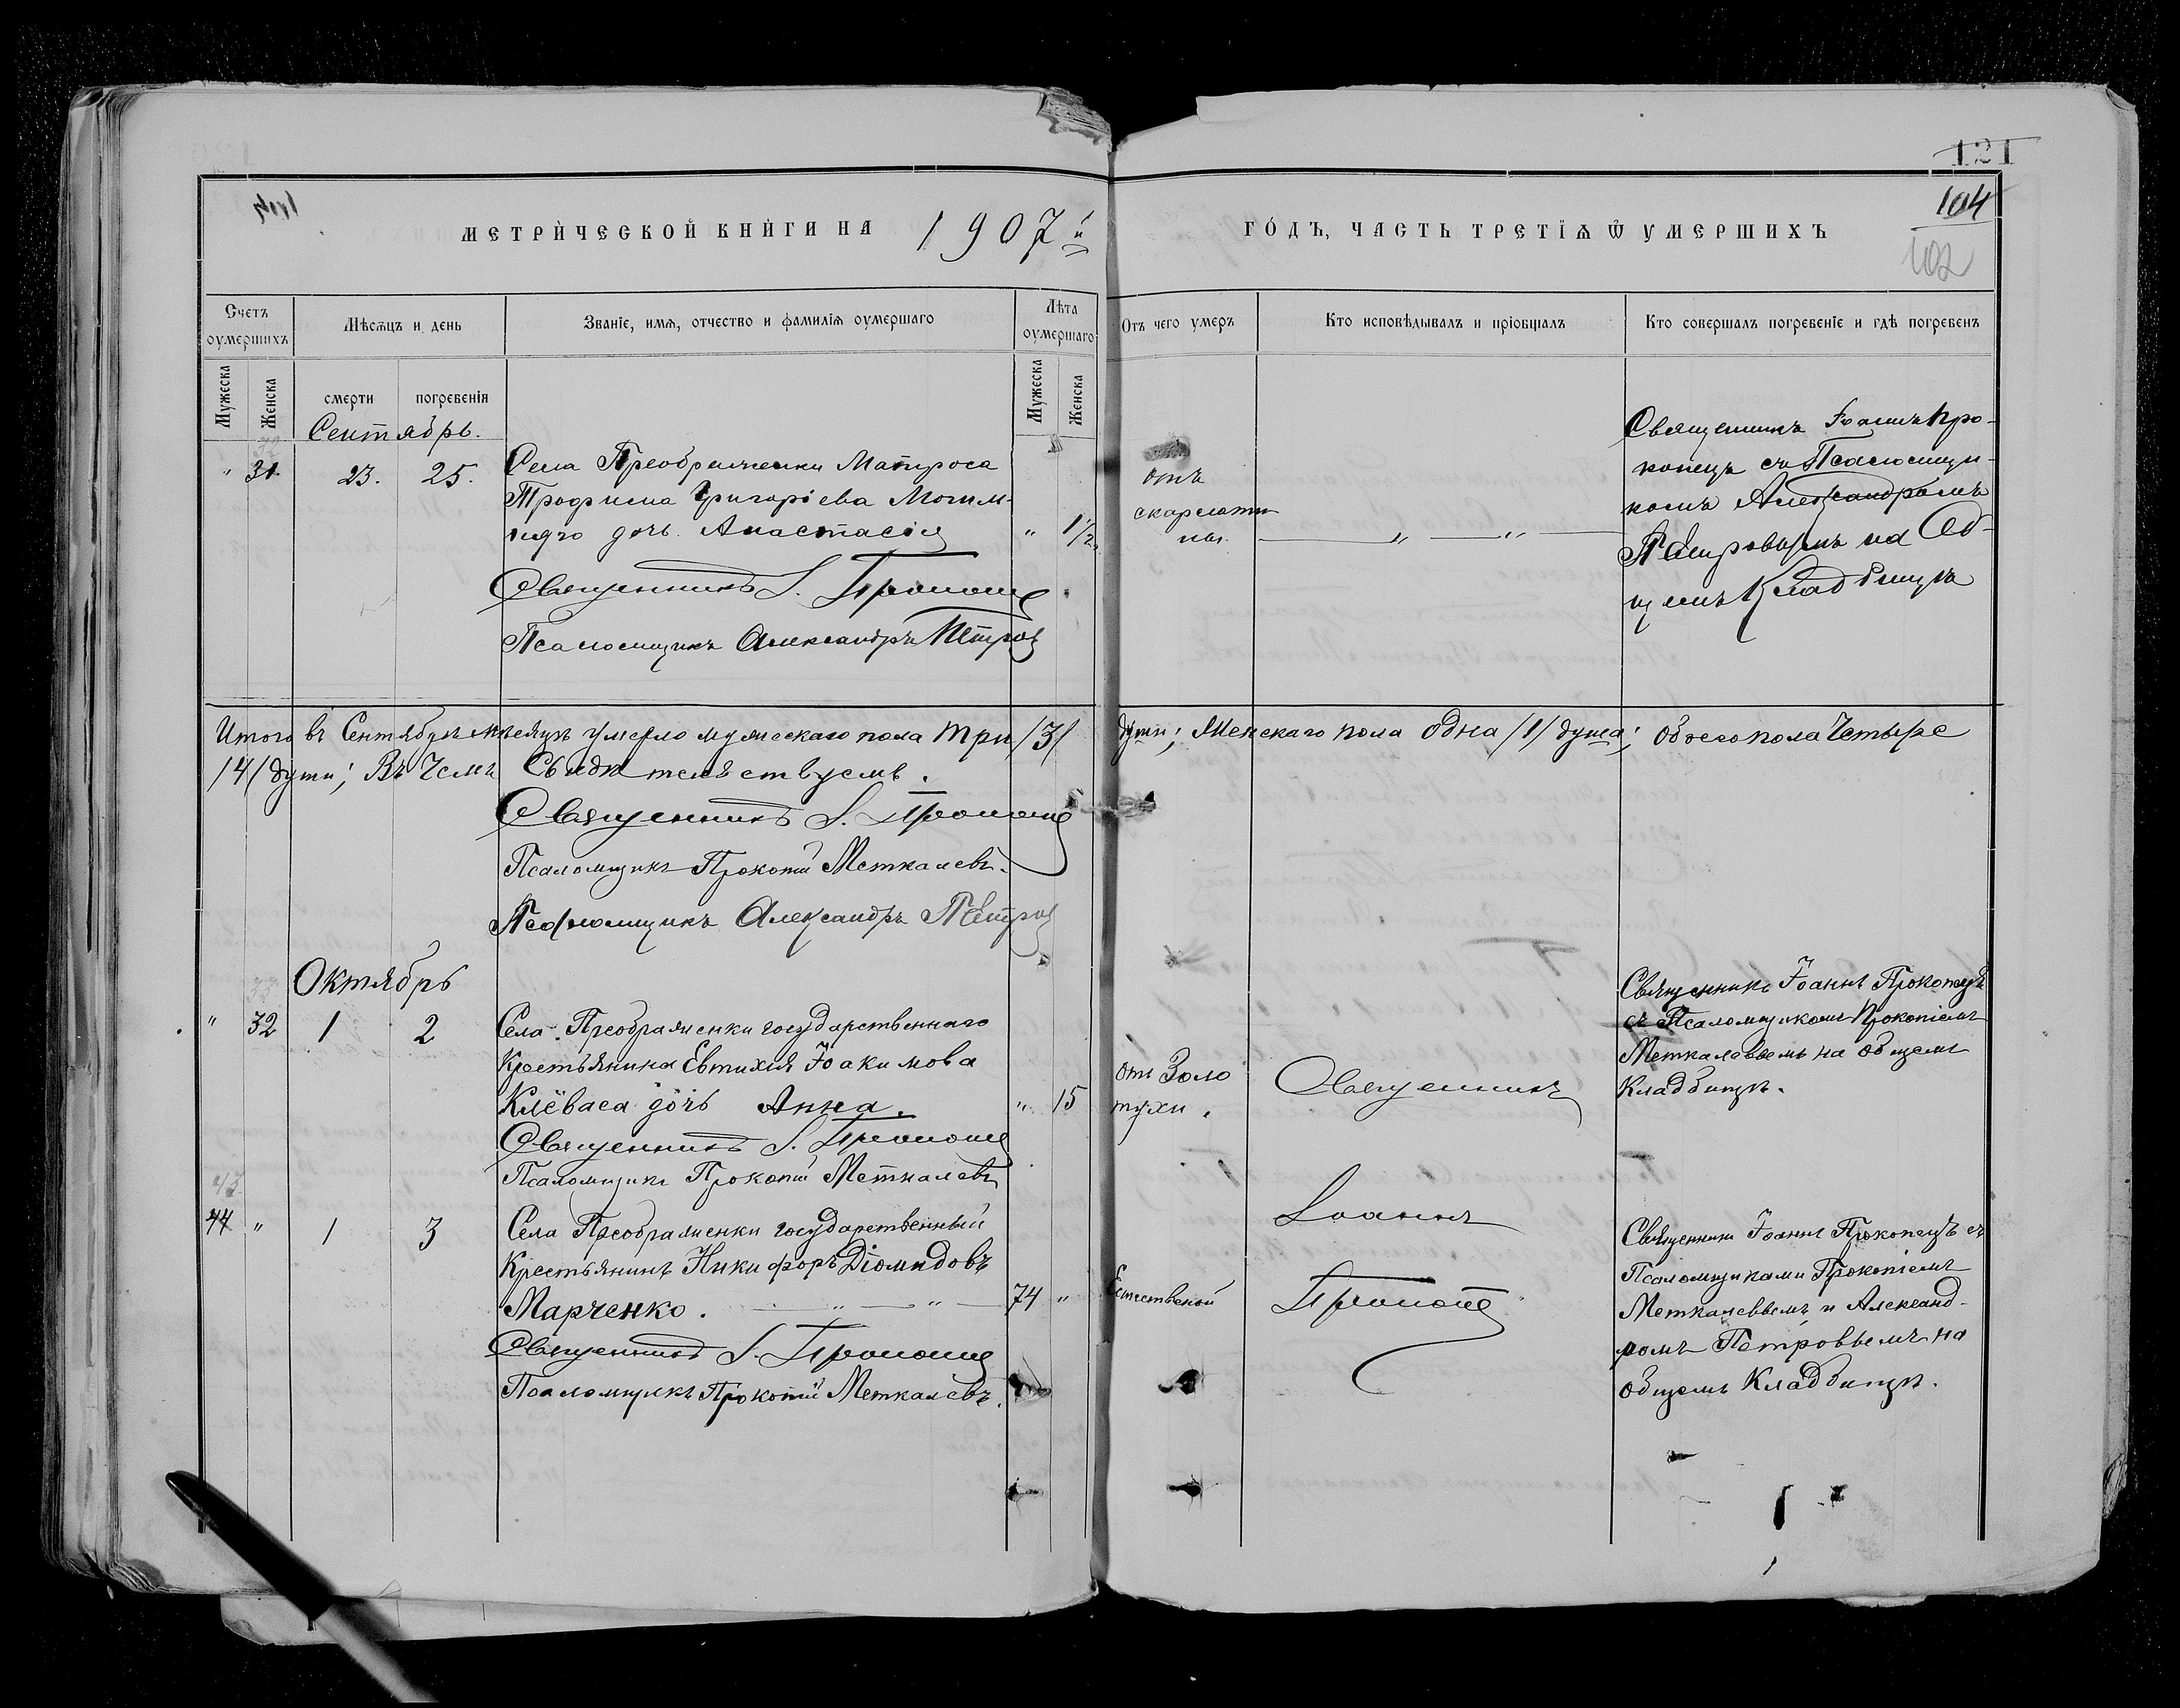 121
104
102
МЕТРИ́ЧЕСКОЙ КНИ́ГИ НА 1907й
ГО́ДЪ, ЧАСТЬ ТРЕТІѦ Ѿ УМЕРШИХЪ
Счетъ оумершихъ
Мѣсѧцъ и день
Званіе, имѧ, отчество и фамиліѧ оумершаго
Лѣта оумершаго
Отъ чего умеръ
Кто исповѣдывалъ и пріобщалъ
Кто совершалъ погребеніе и гдѣ погребенъ
Мужеска
Женска
смерти
погребенія
Мужеска
Женска
Сентябрь.
32
" 31. 23. 25.
Села Преображенки Матроса
Трофима Григорієва
дочь Анастасія " 1 1/2
Священникъ І. Прокопец
Псаломщикъ Александръ Петров
отъ
скарлати
ны.
Священникъ Іоаннъ Про-
копецъ съ Псаломщи-
комъ Александромъ
Петровымъ на Об-
щемъ Кладбищѣ
Итого въ Сентябрѣ мѣсяцѣ умерло мужескаго пола три /3/ души; Женскаго пола одна /1/ душа; обоего пола Четыре
/4/ души; Въ Чемъ Свидѣтельствуемъ.
Священникъ І. Прокопец
Псаломщикъ Прокопій Меткалевъ.
Псаломщикъ Александръ Петров
Октябрь
33
" 32 1 2
Села Преображенки государственнаго
Крестьянина Евтихія Іоакимова
Клёваса дочь Анна. " 15
Священникъ І. Прокопец
Псаломщикъ Прокопій Меткалевъ
отъ Золо
тухи.
Священникъ
Іоаннъ
Прокопец
Священникъ Іоаннъ Прокопецъ
съ Псаломщикомъ Прокопіемъ
Меткалевымъ на общемъ
Кладбищѣ.
43
44 " 1 3
Села Преображенки государственный
Крестьянинъ Никифоръ Діомидовъ
Марченко. 74 "
Священникъ І. Прокопец
Псаломщикъ Прокопій Меткалевъ.
Естественой
Священникъ Іоаннъ Прокопецъ съ
Псаломщиками Прокопіемъ
Меткалевымъ и Александ-
ромъ Петровымъ на
общемъ Кладбищѣ.